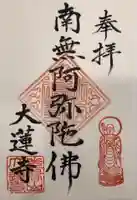 奉拝
南無阿弥陀佛
大蓮寺